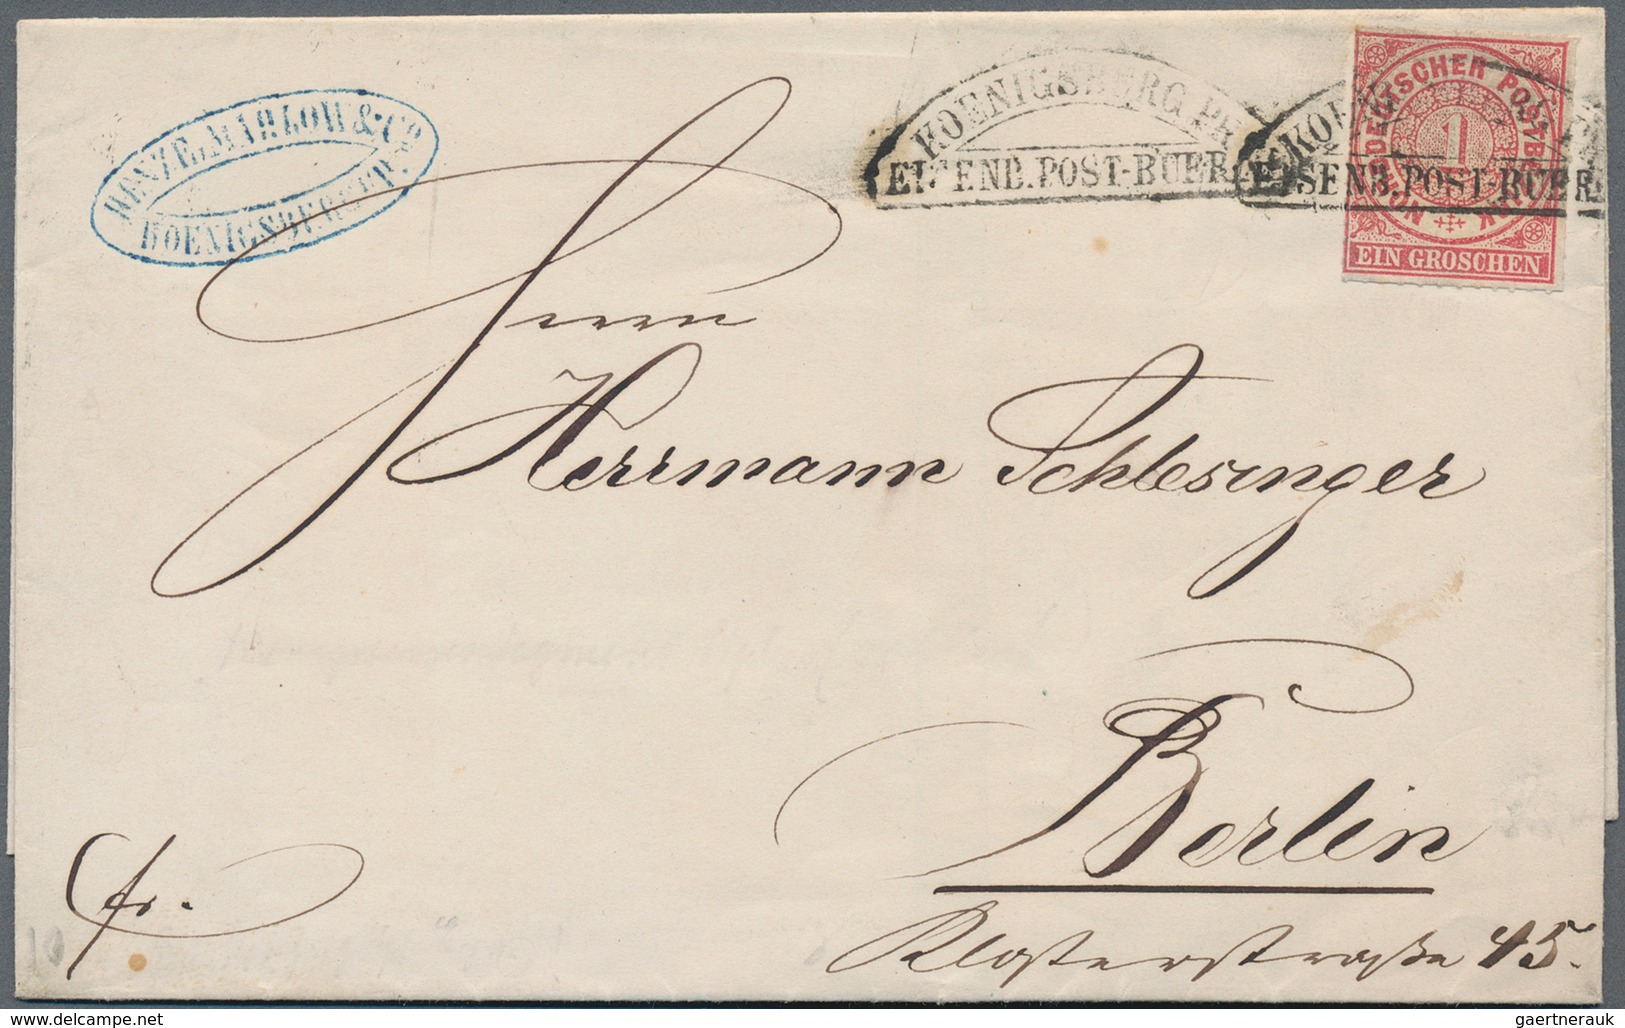 KOENIGSBERG PR
EISENB.POST-BUER
EISENB.POST-BUER
NORDDEUTSCHER POSTBEZIRK
1
EIN GROSCHEN
MARLOW & CO.
KOENIGSBERG
Herrn
Herrmann Schlesinger
Berlin
fr.
Klosterstraße 45.
10
www.delcampe.net
gaertnerauk